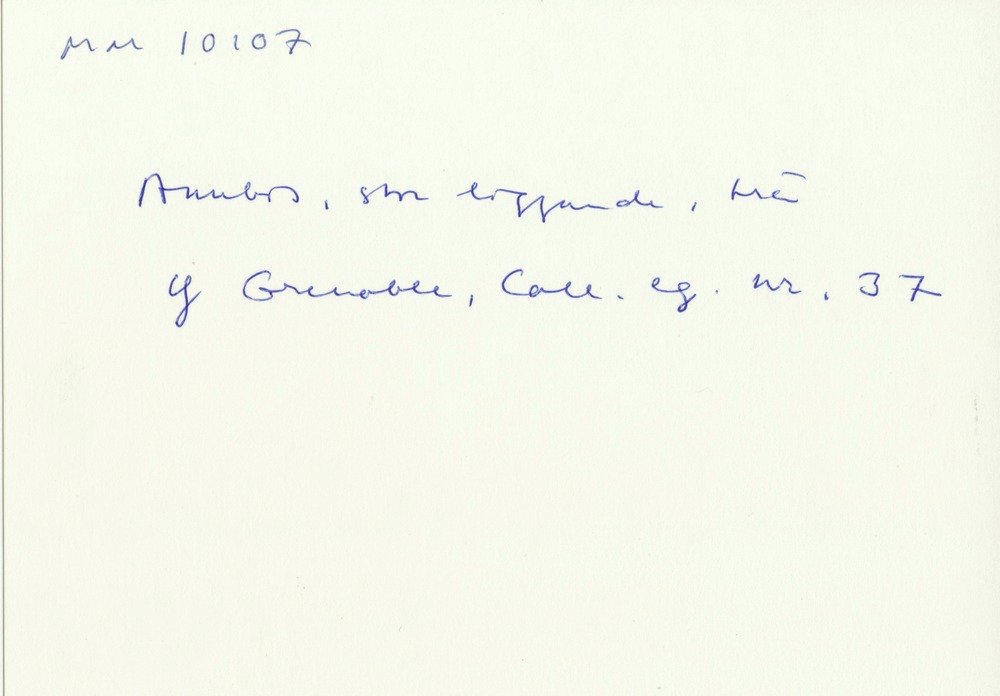 MM 10107
Anubis, stor liggande, trä
Cf Grenoble, Coll. eg. nr. 37